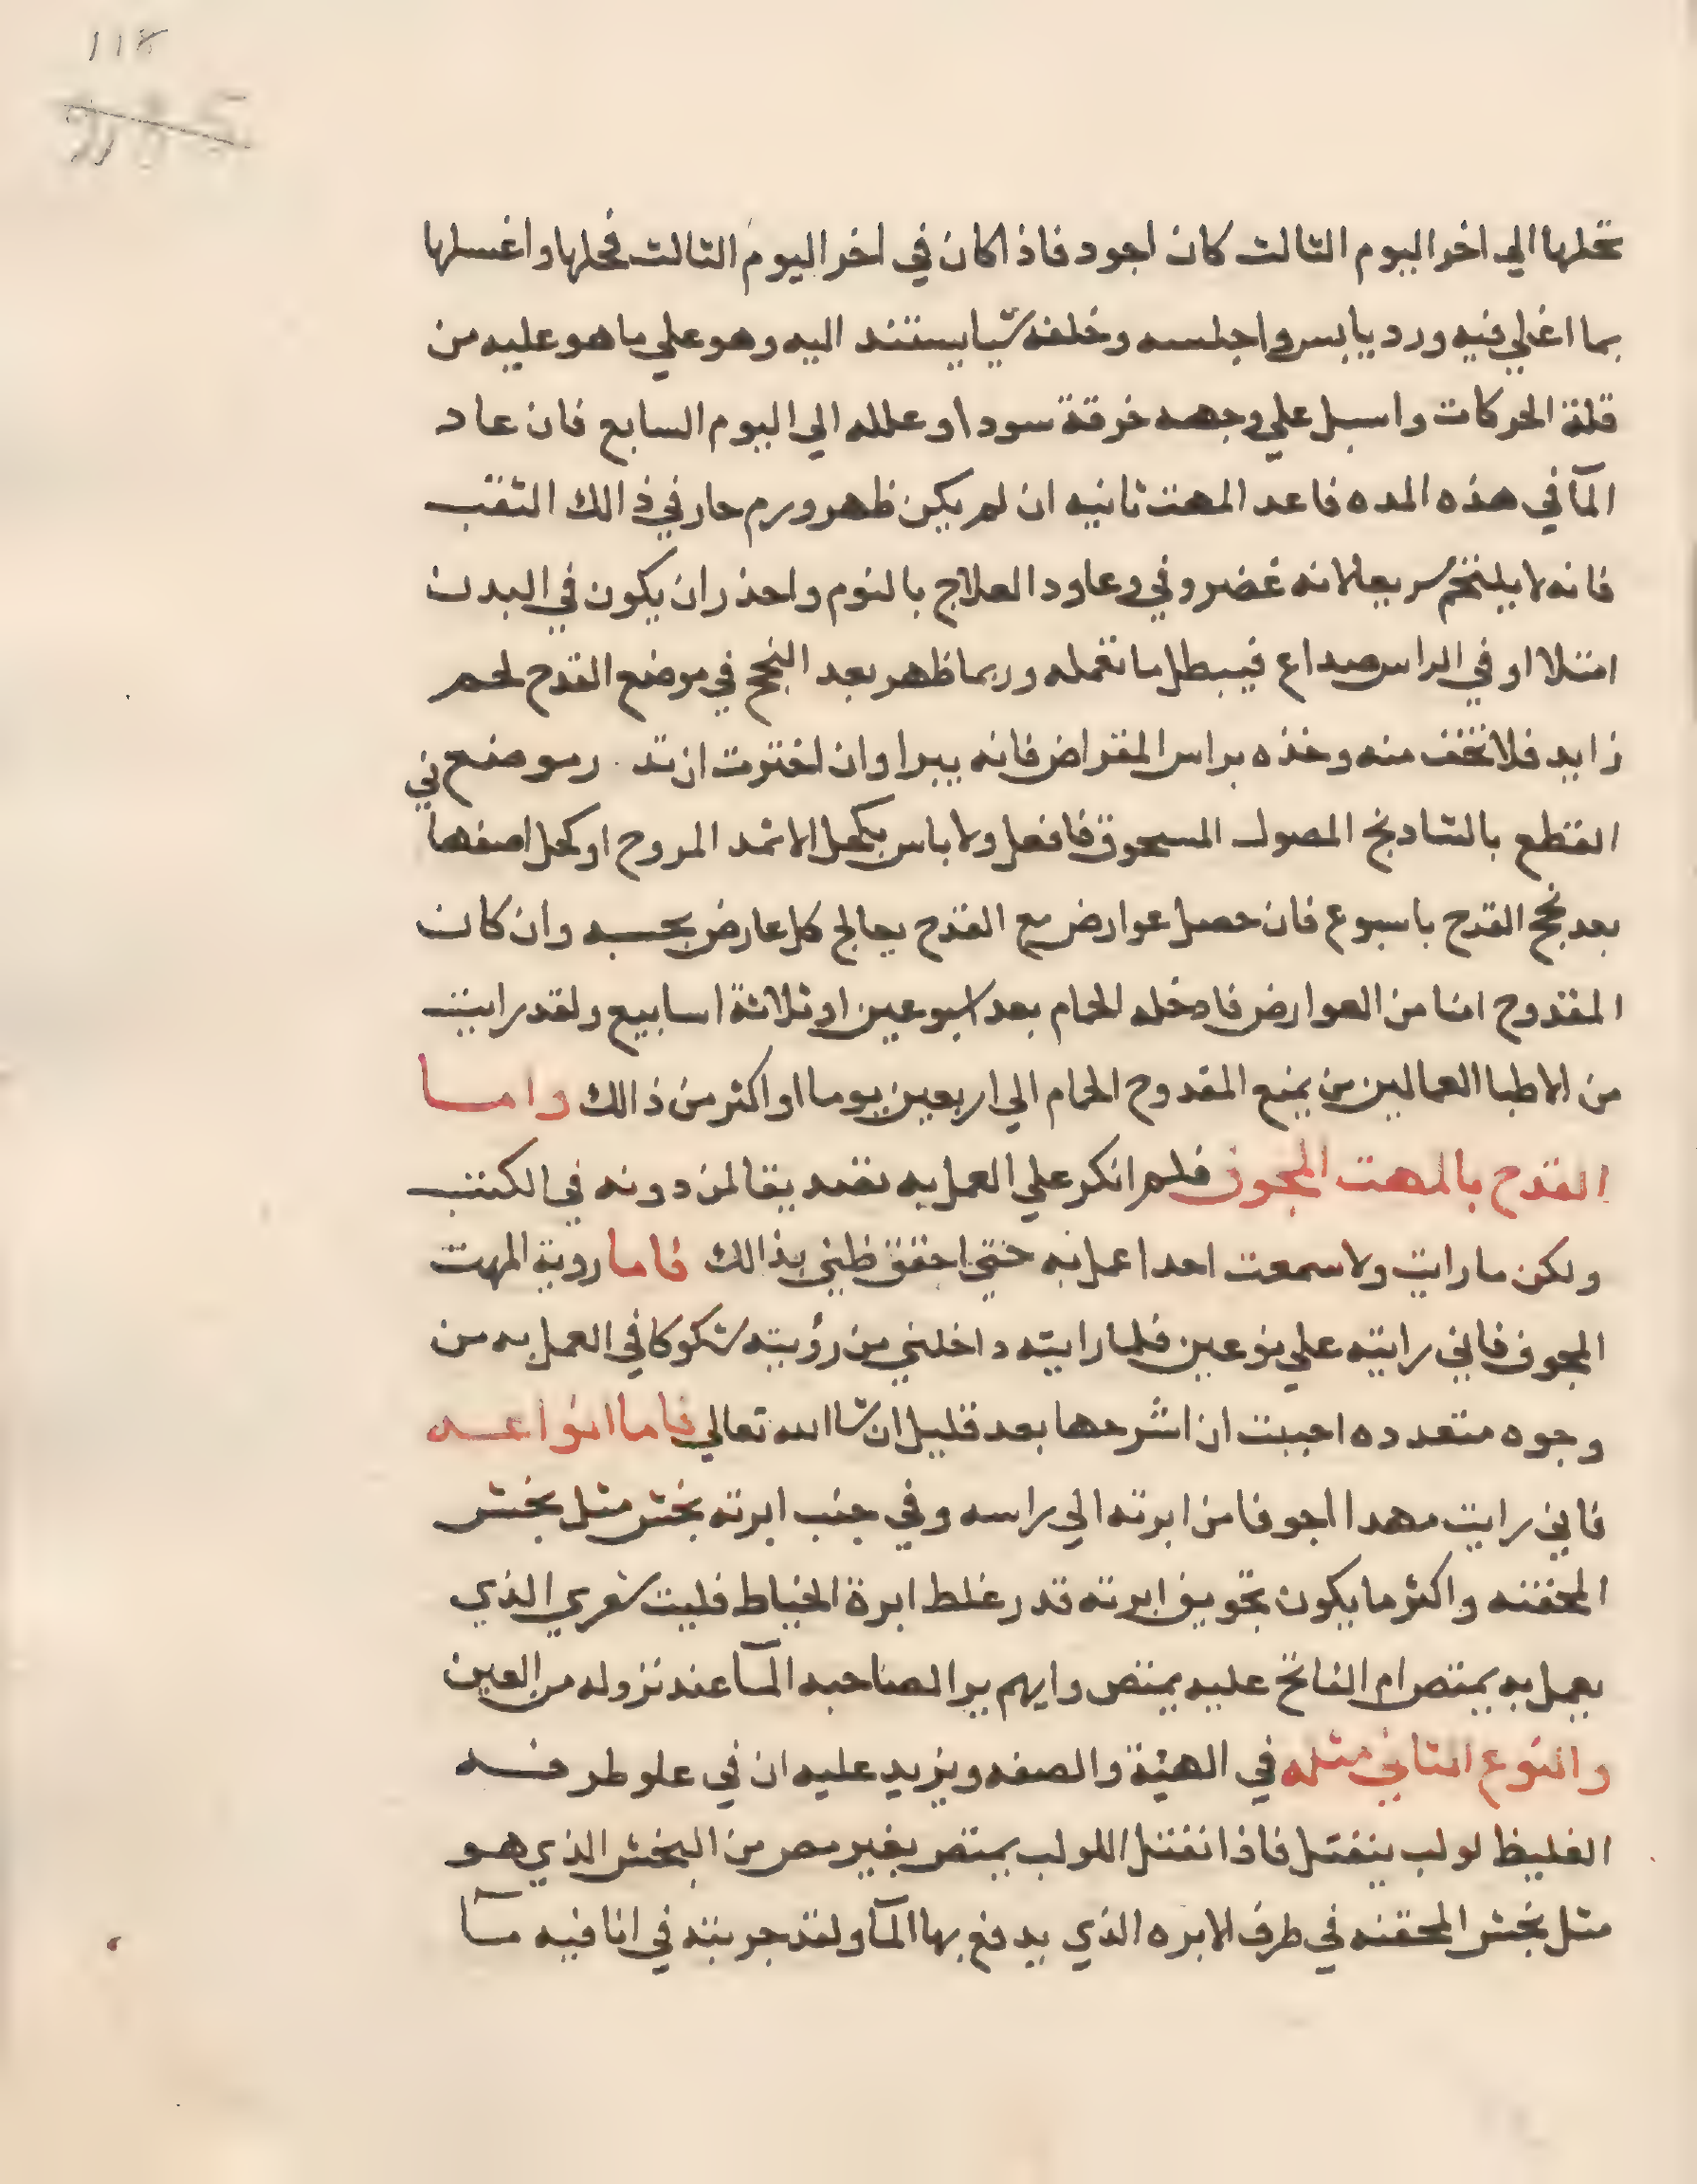 ١١٨
تحلها الي اخر اليوم التالت كان اجود فاذا كان في اخر اليوم التالت فحلها واغسلها
بما اغلي فيه ورد يابس واجلسه وخلفه شيا يستند اليه وهو علي ما هو عليه من
قلة الحركات واسبل علي وجهه خرقة سودا وعلله الي اليوم السابع فان عاد
المآ في هذه المده فاعد المهت ثانيه ان لم يكن ظهر ورم حار في ذالك الثقب
فانه لا يلتحم سريعا لانه غضروفي وعاود العلاج بالنوم واحذر ان يكون في البدن
امتلا او في الراس صداع فيبطل ما تعمله وربما ظهر بعد النجح في موضع القدح لحم
زايد فلا تخف منه وخذه براس المقراض فانه يبرا وان اخترت ان تد رموضع ني
القطع بالشادنج المصول المسحوق فافعل ولا باس بكحل الاثمد المروح او كحل اصفها
بعد نجح القدح باسبوع فان حصل عوارض مع القدح يعالج كل عارض بحسبه وان كان
المقدوح امنا من العوارض فادخله الحمام بعد اسبوعين او ثلاثة اسابيع ولقد رايت
من الاطبا العمالين من يمنع المقدوح الحمام الي اربعين يوما او اكثر من ذالك واما
القدح بالمهت المجوف فلم انكر علي العمل به تصديقا لمن دونه في الكتب
ولكن ما رايت ولا سمعت احدا عمل به حتي احقق ظني بذالك فاما روية المهت
المجوف فاني رايته علي نوعين فلما رايته داخلني من رؤيته شكوكا في العمل به من
وجوه متعدده احببت ان اشرحها بعد قليل ان شا الله تعالي فاما انواعه
فاني رايت مهدا اجوفا من ابرته الي راسه وفي جنب ابرته بخش مثل بخش
المحقنه واكثر ما يكون تجويف ابرته قدر غلظ ابرة الخياط فليت شعري الذي
يعمل به يمتص ام الفاتح عليه يمتص وايهم يرا لصاحبه المآ عند نزوله من العين
والنوع التاني مثله في الهيئة والصفه ويزيد عليه ان في علو طرفه
الغليظ لولب ينفتل فاذا انفتل اللولب يمتص بغير مص من البخش الذي هو
مثل بخش المحقنه في طرف الابره الذي يدفع بها المآ ولقد جربته في انا فيه مآ